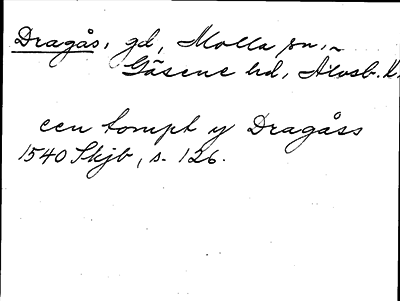 Dragås, gd, Molla sn.,
Gäsene hd, Älvsb. l.
een tompt y Dragåss
1540 Skjb, s. 126.